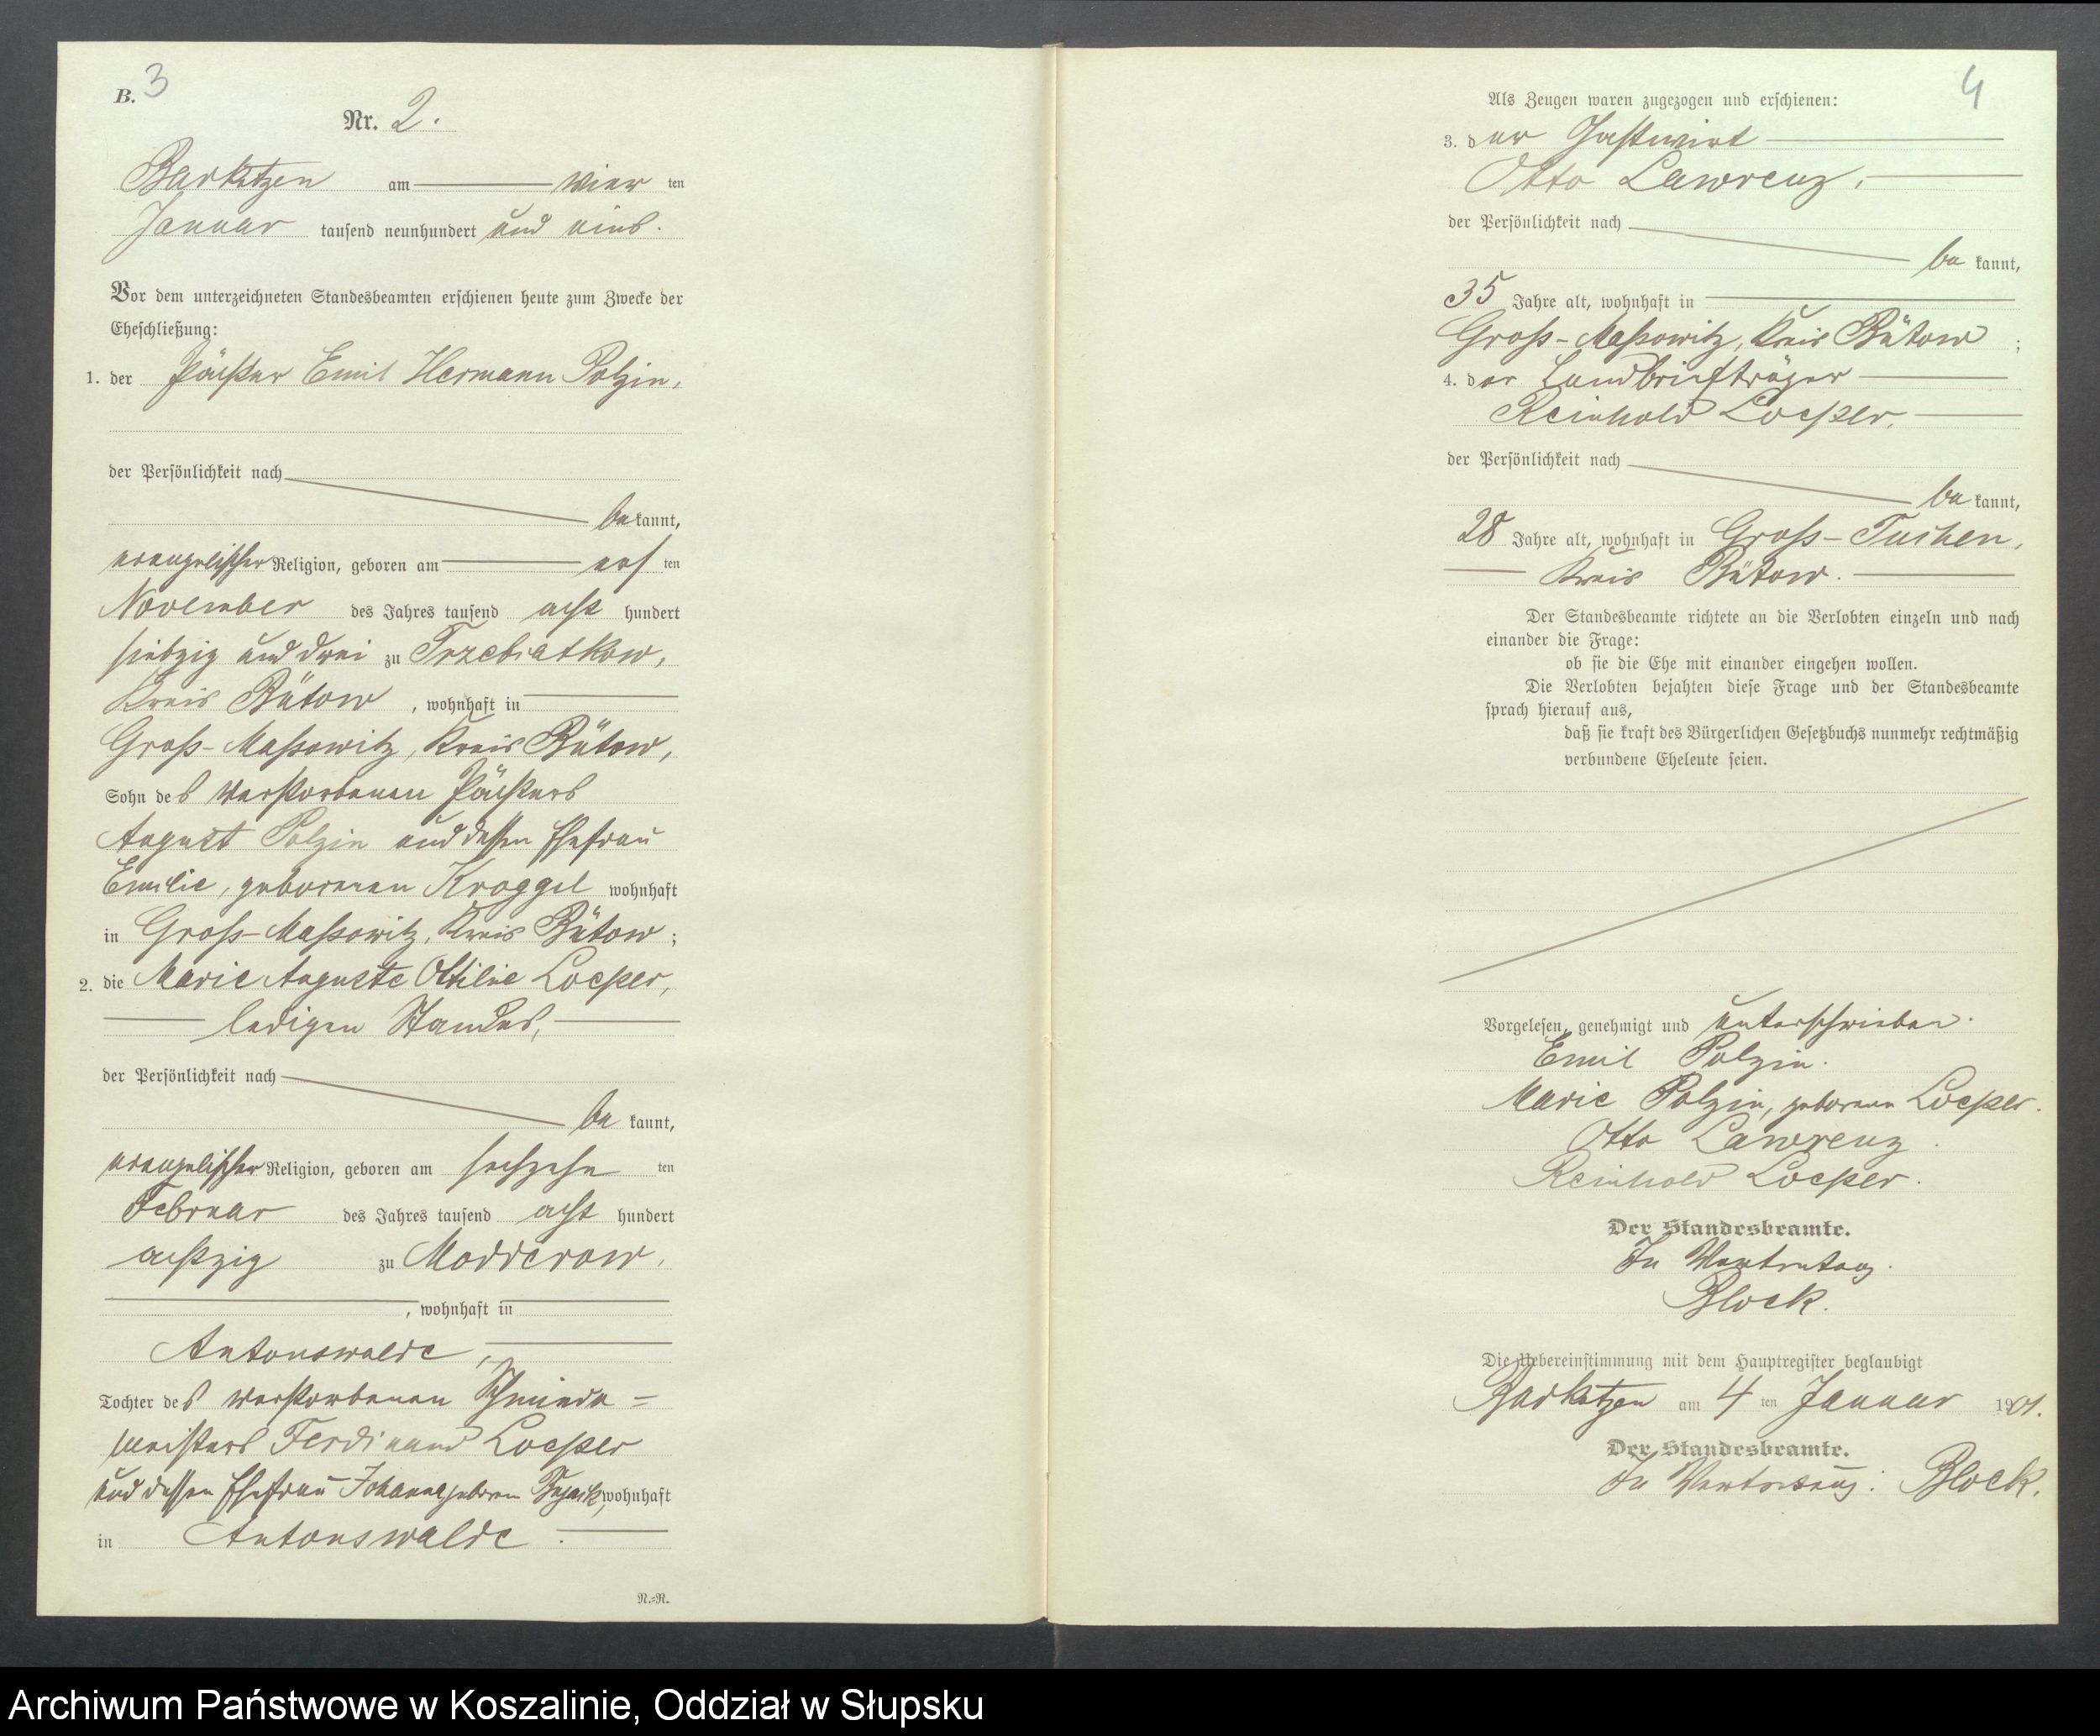 B. 3
Nr. 2.
Barkotzen am vier ten
Januar tausend neunhundert und eins.
Vor dem unterzeichneten Standesbeamten erschienen heute zum Zwecke der
Eheschließung:
1. der Pächter Emil Hermann Polzin,
der Persönlichkeit nach
be kannt,
evangelischer Religion, geboren am acht ten
November des Jahres tausend acht hundert
siebzig und drei zu Trzebiatkow,
Kreis Bütow, wohnhaft in
Gross-Massowitz, Kreis Bütow,
Sohn des verstorbenen Pächters
August Polzin und dessen Ehefrau
Emilie, geborenen Kroggel wohnhaft
in Gross-Massowitz, Kreis Bütow;
2. die Marie Auguste Ottilie Loeper,
ledigen Standes,
der Persönlichkeit nach
be kannt,
evangelischer Religion, geboren am sechzehn ten
Februar des Jahres tausend acht hundert
achtzig zu Modderow,
, wohnhaft in
Antonswalde,
Tochter des verstorbenen Schmiede=
meisters Ferdinand Loeper
und dessen Ehefrau Johanna geboren wohnhaft
in Antonswalde.
N.=N.
4
Als Zeugen waren zugezogen und erschienen:
3. der Gastwirt
Otto Lawrenz,
der Persönlichkeit nach
be kannt,
35 Jahre alt, wohnhaft in
Gross-Massowitz, Kreis Bütow;
4. der Landbriefträger
Reinhold Loeper,
der Persönlichkeit nach
be kannt,
28 Jahre alt, wohnhaft in Gross-Tuchen,
Kreis Bütow.
Der Standesbeamte richtete an die Verlobten einzeln und nach
einander die Frage:
ob sie die Ehe mit einander eingehen wollen.
Die Verlobten bejahten diese Frage und der Standesbeamte
sprach hierauf aus,
daß sie kraft des Bürgerlichen Gesetzbuchs nunmehr rechtmäßig
verbundene Eheleute seien.
Vorgelesen, genehmigt und unterschrieben.
Emil Polzin.
Marie Polzin, geborene Loeper.
Otto Lawrenz.
Reinhold Loeper.
Der Standesbeamte.
In Vertretung.
Block.
Die Uebereinstimmung mit dem Hauptregister beglaubigt
Barkotzen am 4 ten Januar 1901.
Der Standesbeamte.
In Vertretung: Block.
Archiwum Państwowe w Koszalinie, Oddział w Słupsku